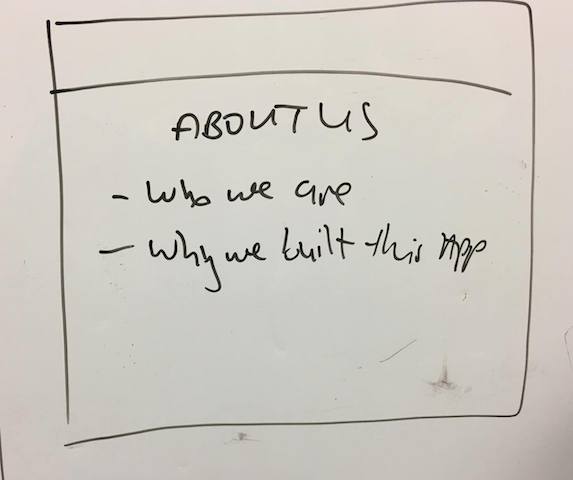 ABOUT US
- Who we are
- Why we built this App